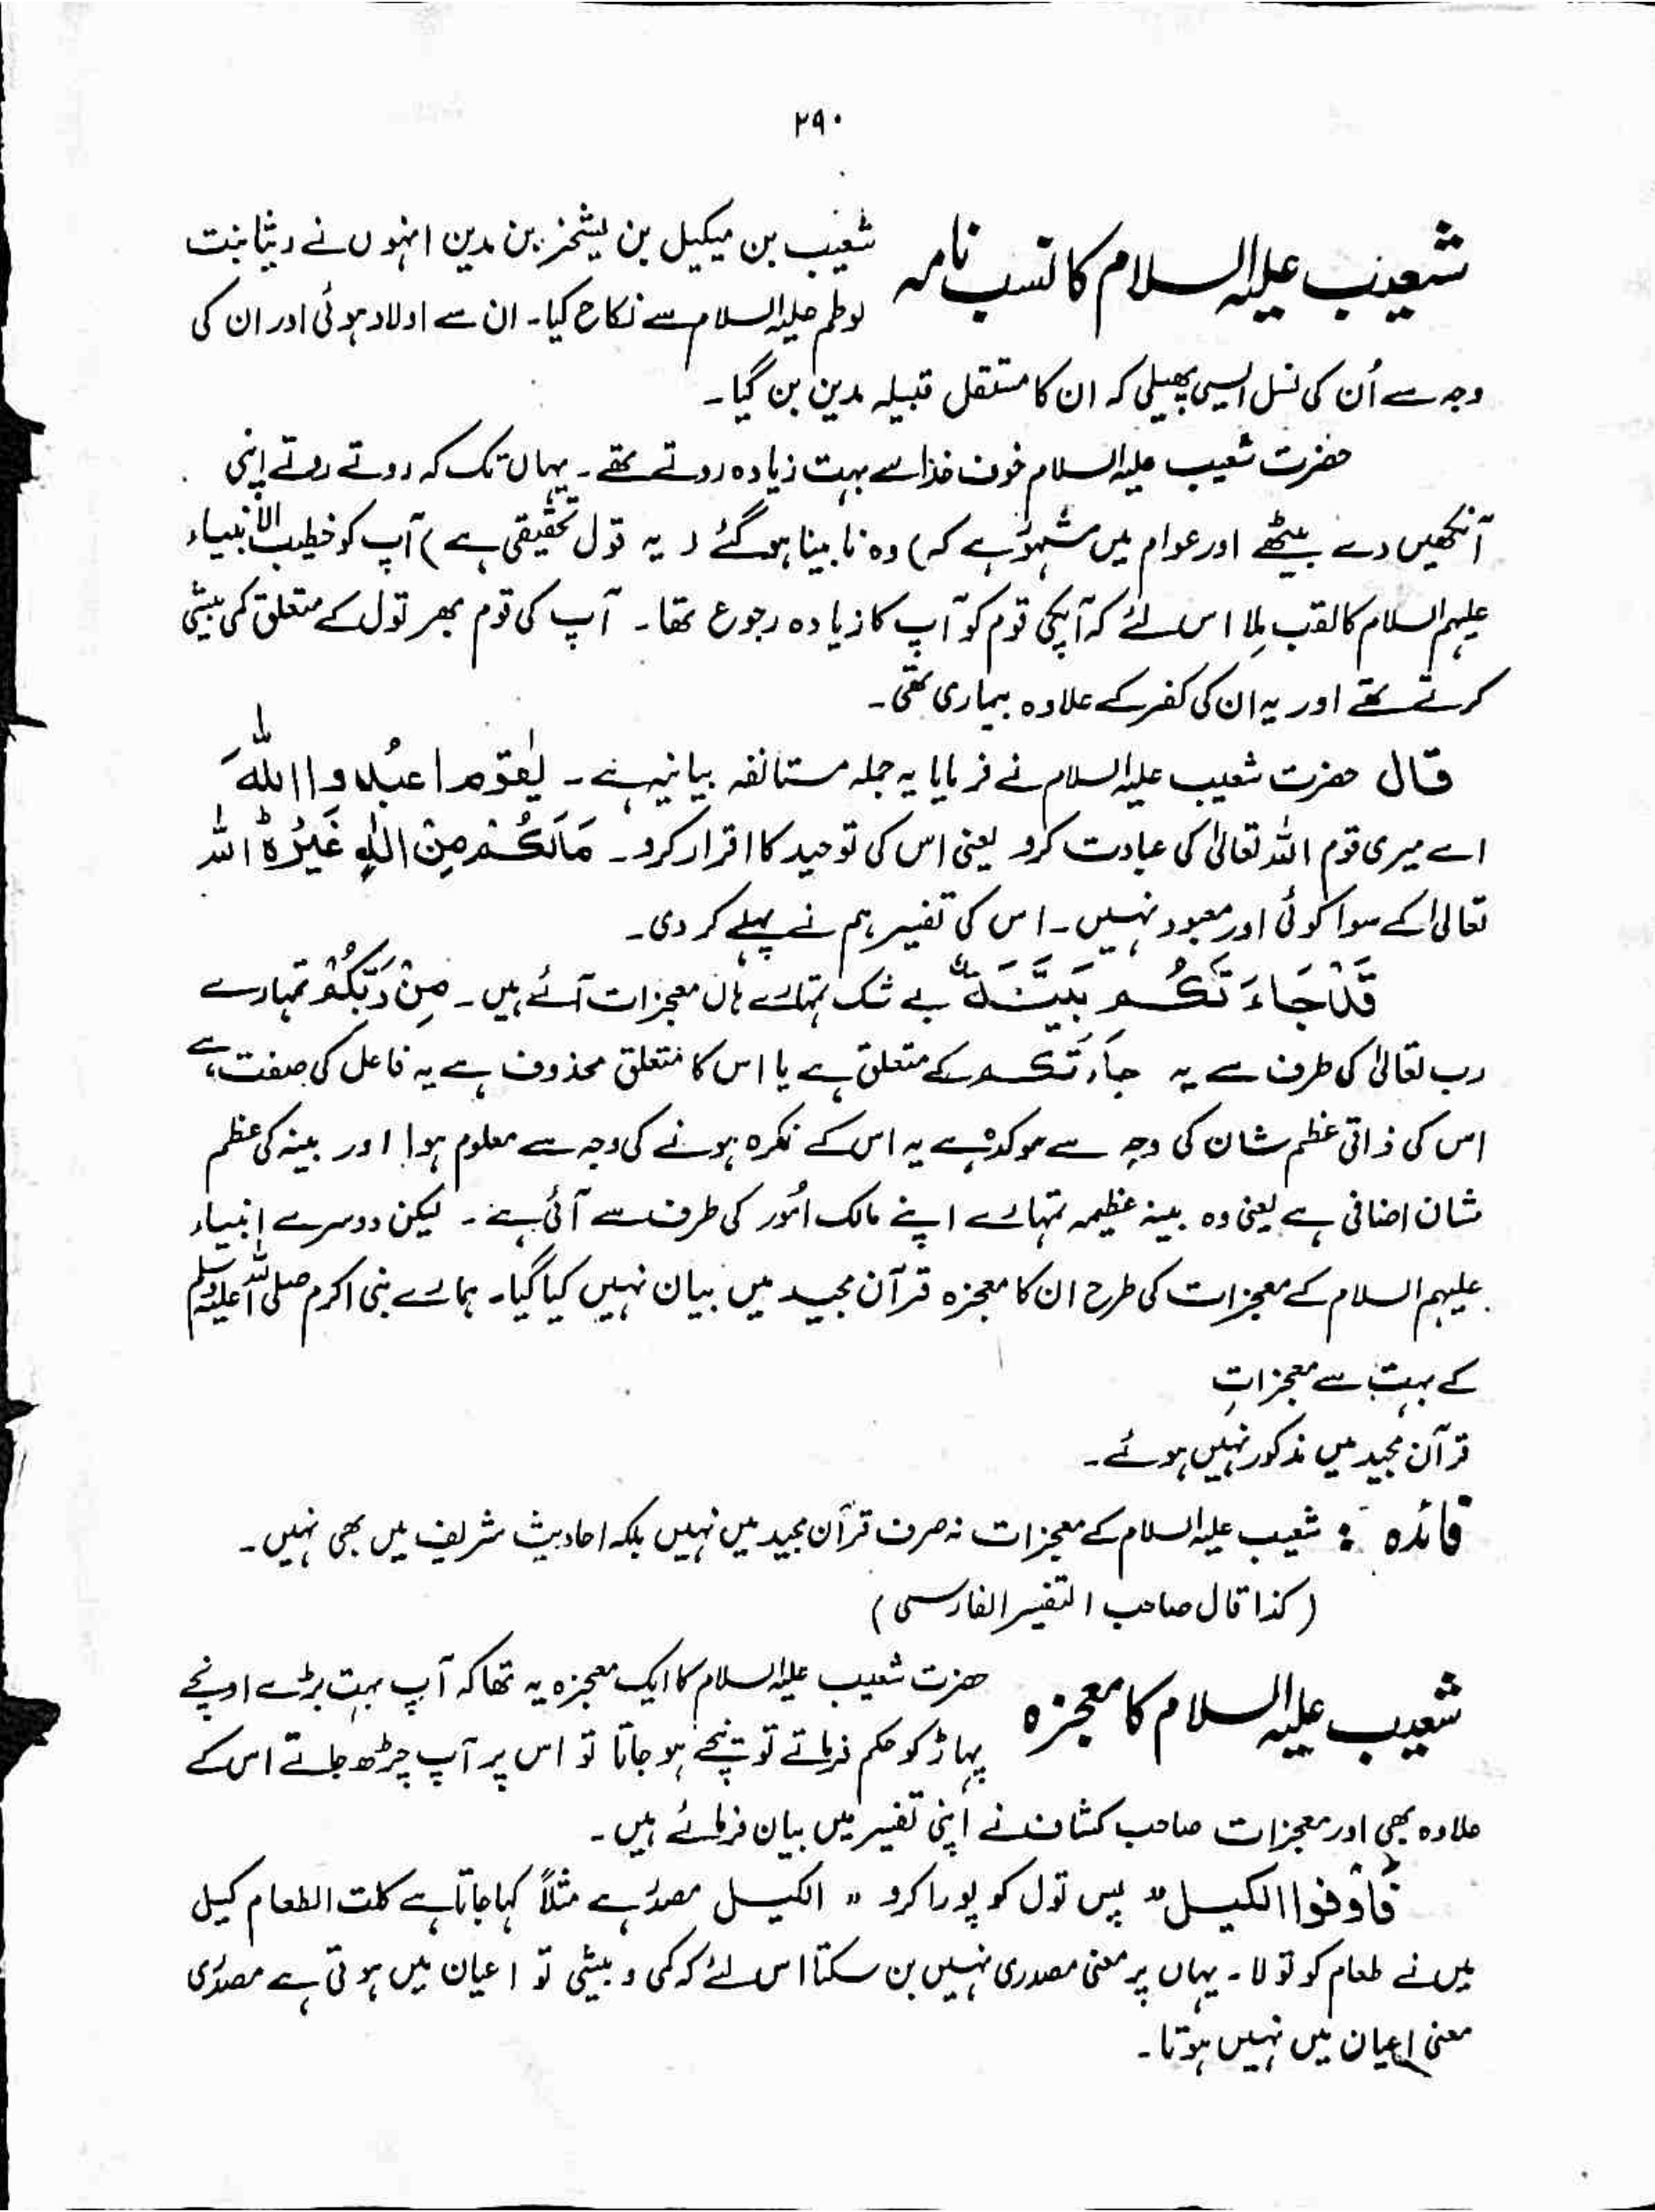 ۲۹۰
شعیب علیہ السلام کا نسب نامہ
شعیب بن میکیل بن یشجز بن مدین انہوں نے ریثا بنت
لوط علیہ السلام سے نکاح کیا۔ ان سے اولاد ہوئی اور ان کی
وجہ سے اُن کی نسل ایسی پھیلی کہ ان کا مستقل قبیلہ مدین بن گیا۔
حضرت شعیب علیہ السلام خوف خدا سے بہت زیادہ روتے تھے۔ یہاں تک کہ روتے روتے اپنی
آنکھیں دے بیٹھے اور عوام میں مشہور ہے کہ) وہ نابینا ہوگئے ( یہ قول تحقیقی ہے) آپ کو خطیب الانبیاء
علیہم السلام کا لقب مِلا اس لئے کہ آپکی قوم کو آپ کا زیادہ رجوع تھا۔ آپ کی قوم بھر تول کے متعلق کمی بیشی
کرتے تھے اور یہ ان کی کفر کے علاوہ بیماری تھی۔
قال حضرت شعیب علیہ السلام نے فرمایا یہ جملہ مستانفہ بیانیہ ہے۔ یٰقوم اعبُدوا اللہَ
اے میری قوم اللہ تعالیٰ کی عبادت کرو یعنی اس کی توحید کا اقرار کرو۔ مَالَکُم مِنْ اِلٰہٍ غَیْرُہٗ اللہ
تعالیٰ کے سوا کوئی اور معبود نہیں۔ اس کی تفسیر ہم نے پہلے کر دی۔
قَدْجَاءَتْکُم بَیِّنَۃٌ بے شک تمہارے ہاں معجزات آئے ہیں۔ مِنْ رَبِّکُمْ تمہارے
رب تعالیٰ کی طرف سے یہ جاءَتکم کے متعلق ہے یا اس کا متعلق محذوف ہے یہ فاعل کی صفت ہے
اس کی ذاتی عظم شان کی وجہ سے موکد ہے یہ اس کے نکرہ ہونے کی وجہ سے معلوم ہوا اور بینہ کی عظم
شان اضافی ہے یعنی وہ بینہ عظیمہ تمہارے اپنے مالک اُمور کی طرف سے آئی ہے۔ لیکن دوسرے انبیاء
علیہم السلام کے معجزات کی طرح ان کا معجزہ قرآن مجید میں بیان نہیں کیا گیا۔ ہمارے نبی اکرم صلی اللہ علیہ وسلم
کے بہت سے معجزات
قرآن مجید میں مذکور نہیں ہوئے۔
فائدہ : شعیب علیہ السلام کے معجزات نہ صرف قرآن مجید میں نہیں بلکہ احادیث شریف میں بھی نہیں۔
(کذا قال صاحب التفسیر الفارسی)
شعیب علیہ السلام کا معجزہ
حضرت شعیب علیہ السلام کا ایک معجزہ یہ تھا کہ آپ بہت بڑے اونچے
پہاڑ کو حکم فرماتے تو نیچے ہو جاتا تو اس پر آپ چڑھ جاتے اس کے
علاوہ بھی اور معجزات صاحب کشاف نے اپنی تفسیر میں بیان فرمائے ہیں۔
فَاَوْفُوا الکیل" پس تول کو پورا کرو " الکیل مصدر ہے مثلاً کہا جاتا ہے کلت الطعام کیل
میں نے طعام کو تولا۔ یہاں پر معنی مصدری نہیں بن سکتا اس لئے کہ کمی و بیشی تو اعیان میں ہوتی ہے مصدری
معنی اعیان میں نہیں ہوتا۔